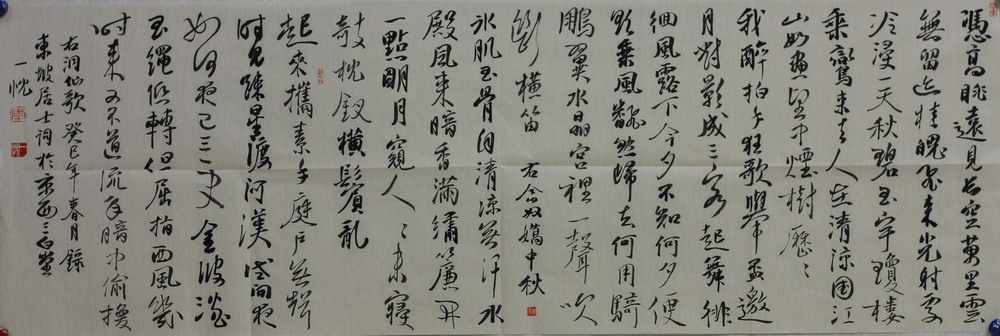 憑高眺遠見長空萬里雲
無留迹桂魄飛來光射處
冷浸一天秋碧玉宇瓊樓
乘鸞來去人在清涼國江
山如畫望中煙樹歷〻
我醉拍手狂歌舉杯邀
月對影成三客起舞徘
徊風露下今夕不知何夕便
欲乘風翻然歸去何用騎
鵬翼水晶宮裡一聲吹
斷橫笛 右念奴嬌中秋
冰肌玉骨自清涼無汗水
殿風來暗香滿繡簾開
一點明月窺人〻未寢
欹枕釵橫鬢亂
起來攜素手庭戶無聲
時見疏星渡河漢試問夜
如何夜已三更金波淡
玉繩低轉但屈指西風幾
時來又不道流年暗中偷換
右洞仙歌 癸巳年春月錄
東坡居士詞於京西三
一忱